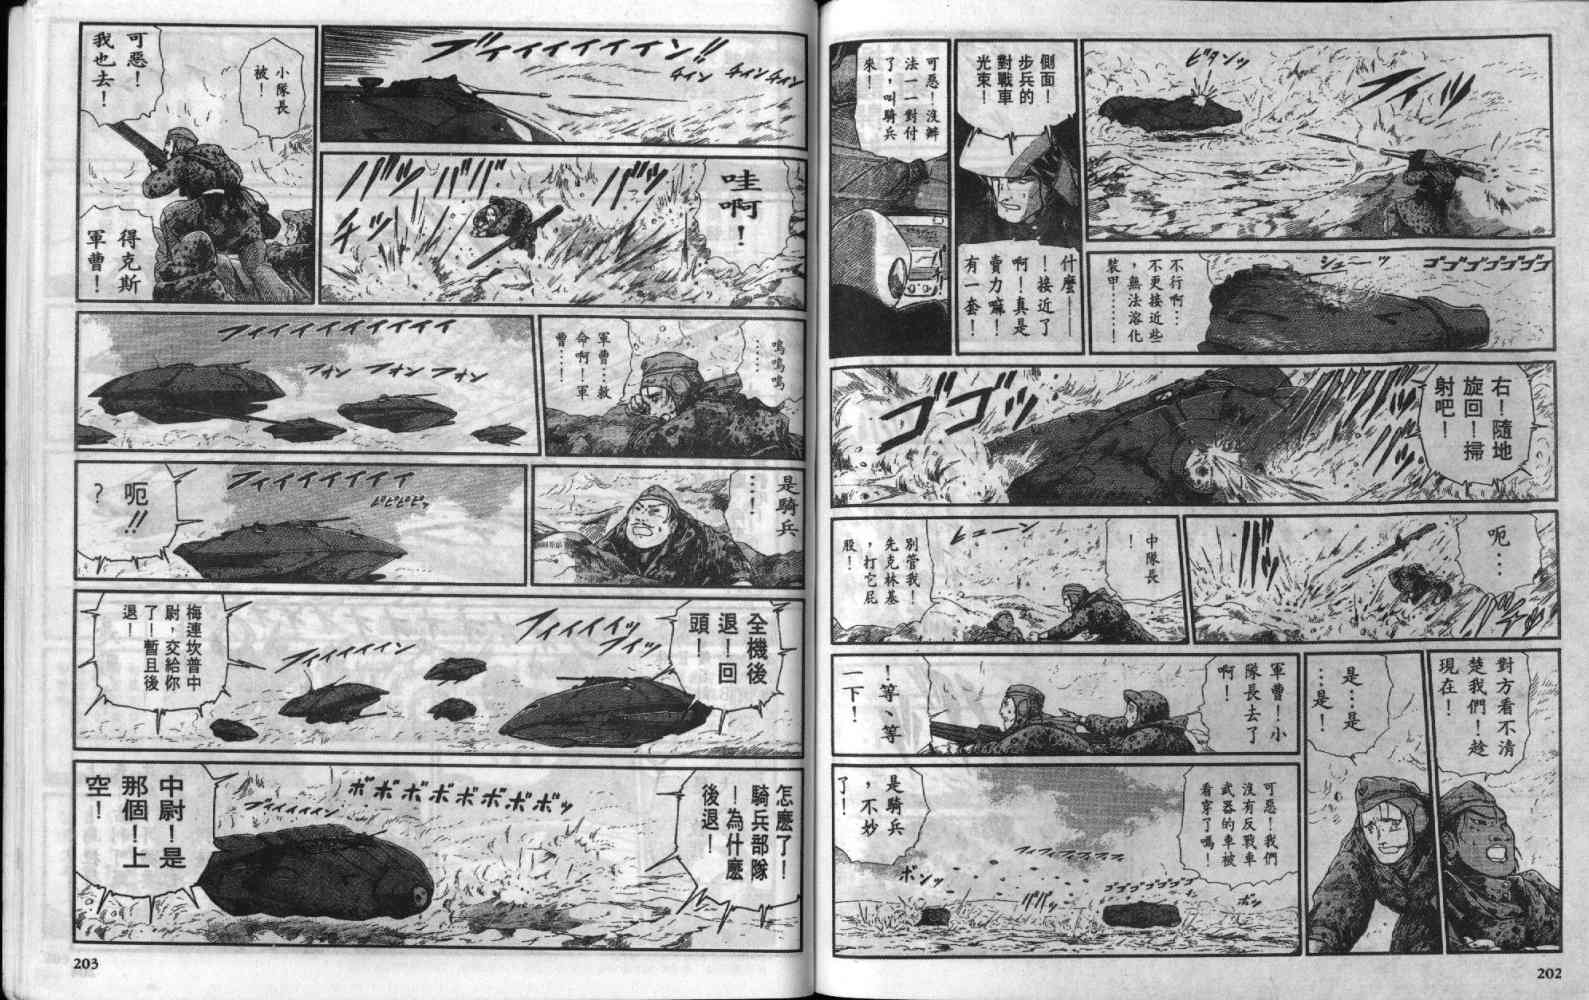 ビタンッ
フィィッ
側面！
步兵的
對戰車
光束！
什麼——
！接近了
啊！真是
賣力嘛！
有一套！
可惡！沒辦
法一一對付
了，叫騎兵
來！
ゴゴゴゴゴゴゴ
シューッ
不行啊…
不更接近些
，無法溶化
裝甲……！
右！隨地
旋回！掃
射吧！
ゴゴゴッ
呃…
中隊長
！
ピューーン
別管我！
先克林基
，打它屁
股！
對方看不清
楚我們！趁
現在！
是…是
…是！
軍曹！小
隊長去了
啊！
！等、等
一下！
可惡！我們
沒有反戰車
武器的車被
看穿了嗎！
是騎兵
，不妙
了！
フィィィィィィィ
ボンッ
パパパッ
ゴゴゴゴゴゴゴ
ボッ
202
ブィィィィィィィンッ
チィン チィンチィン
小隊長
被！
可惡！
我也去！
得克斯
軍曹！
哇啊！
バババッ
バババッ
バババッ
チッ
嗚嗚嗚
……
軍曹…救
命啊！軍
曹…！
フィィィィィィィィィ
フォン フォン フォン
是騎兵
…！
フィィィィィィィ
呃！！
？
全機後
退！回
頭！
フィィィィッ
フィッ
フィィィィィン
梅連坎普中
尉，交給你
了！暫且後
退！
怎麼了！
騎兵部隊
！為什麼
後退！
ボボボボボボボボッ
ブィィィィィン
中尉！是
那個！上
空！
203